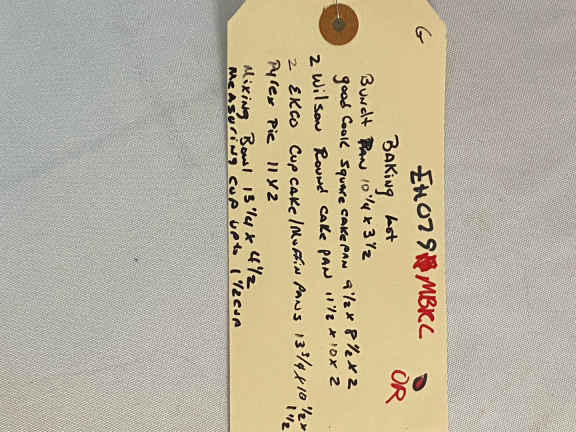 G
IH079 MBKC OR
BAKING Lot
Bundt PAN 10 1/4 x 3 1/2
good Cook Square cake pan 9 1/2 x 8 1/2 x 2
2 Wilson Round cake pan 11 1/2 x 10 x 2
2 EKCO Cupcake/Muffin Pans 13 3/4 x 10 1/2 x 1 1/2
Pyrex Pie 11 x 2
Mixing Bowl 13 1/4 x 4 1/2
Measuring cup up to 1 1/2 cup